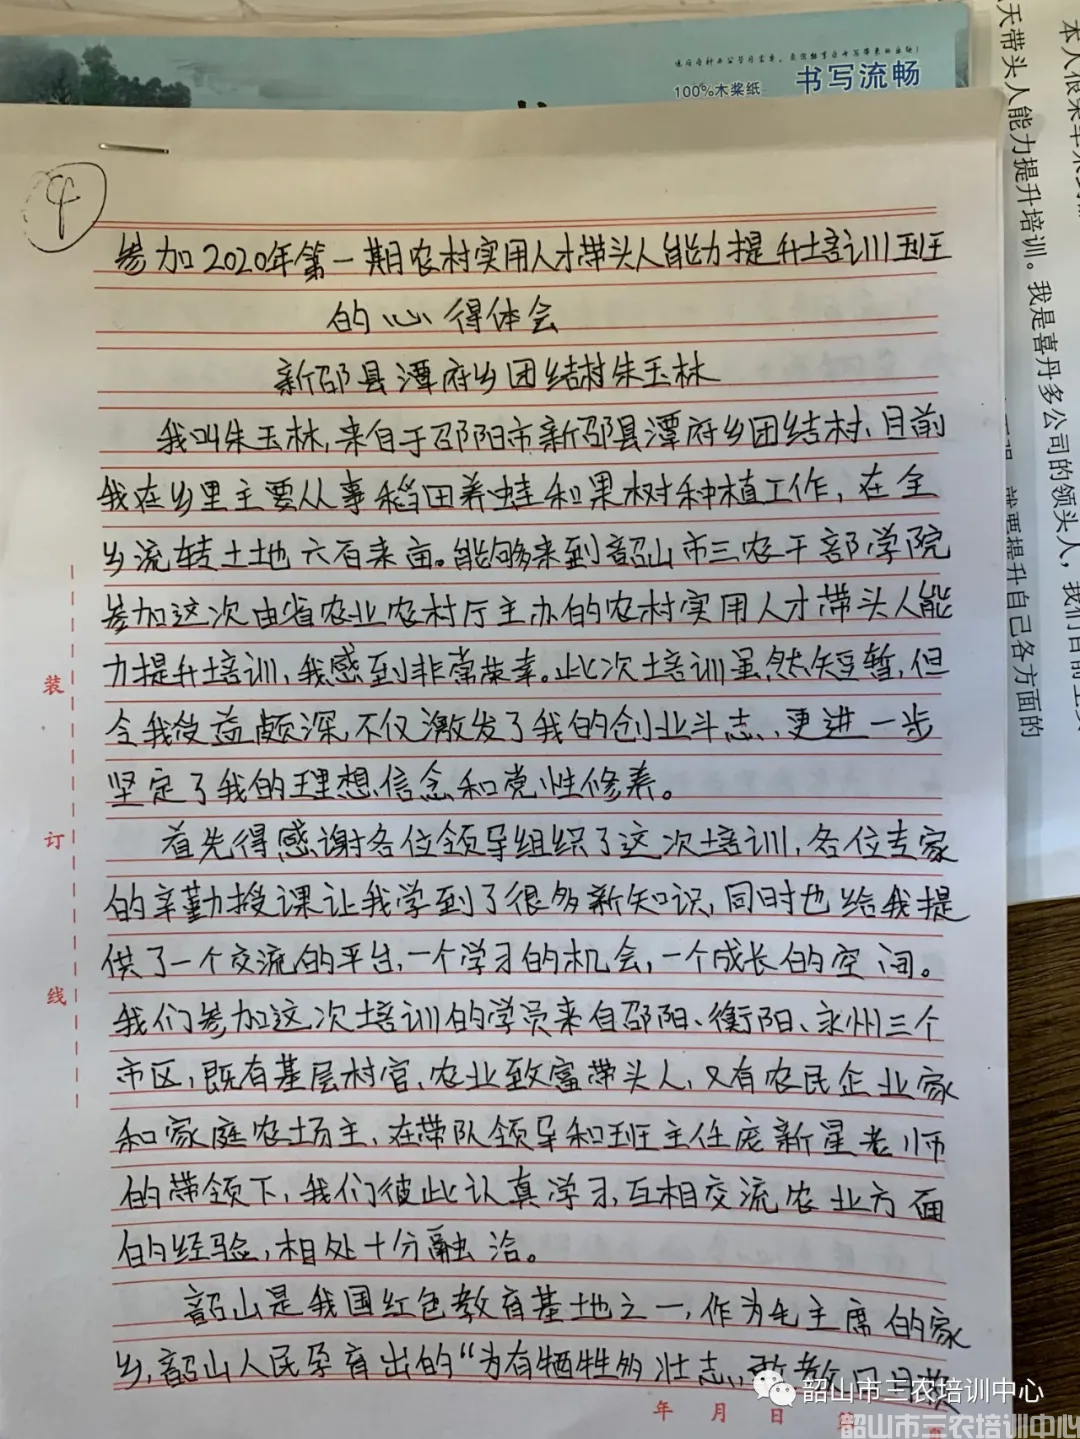 100%木桨纸
书写流畅
4
参加2020年第一期农村实用人才带头人能力提升培训班
的心得体会
新邵县潭府乡团结村朱玉林
我叫朱玉林,来自于邵阳市新邵县潭府乡团结村、目前
我在乡里主要从事稻田养蛙和果树种植工作,在全
乡流转土地六百来亩。能够来到韶山市三农干部学院
参加这次由省农业农村厅主办的农村实用人才带头人能
力提升培训,我感到非常荣幸。此次培训虽然短暂,但
令我受益颇深,不仅激发了我的创业斗志、更进一步
坚定了我的理想信念和党性修养。
首先得感谢各位领导组织了这次培训,各位专家
的辛勤授课让我学到了很多新知识,同时也给我提
供了一个交流的平台,一个学习的机会,一个成长的空间。
我们参加这次培训的学员来自邵阳、衡阳、永州三个
市区,既有基层村官、农业致富带头人,又有农民企业家
和家庭农场主、在带队领导和班主任庞新星老师
的带领下,我们彼此认真学习,互相交流农业方面
的经验,相处十分融洽。
韶山是我国红色教育基地之一,作为毛主席的家
乡,韶山人民孕育出的“为有牺牲多壮志,敢教日月换
装
订
线
年 月 日 第
韶山市三农培训中心
韶山市三农培训中心
天带头人能力提升培训。我是喜丹多公司的领头人,我们目前主
就要提升自己各方面的